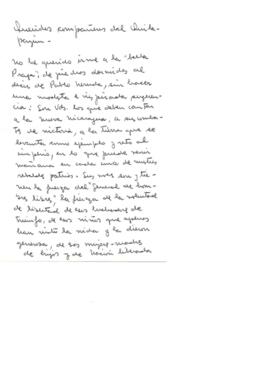 Queridos compañeros del Quila-
payún -
No he querido irme a la "bella
Praga", de piedras dormidas al
decir de Pablo Neruda, sin hacer
una modesta e sugeren-
cia: Son Uds. los que deben cantar
a la nueva Nicaragua, a su combate
de victoria, a la tierra que se
levanta como ejemplo y reto al
imperio, en lo que puede venir
mañana en cada una de nuestras
rebeldes patrias. Sus voces son y tie-
nen la fuerza del "General de hom-
bres libres", la fuerza de la voluntad
de libertad de sus luchadores de
triunfo, de sus niños que apenas
han visto la vida y la dieron
generosa, de sus mujeres-madres
de hijos y de Nación liberada